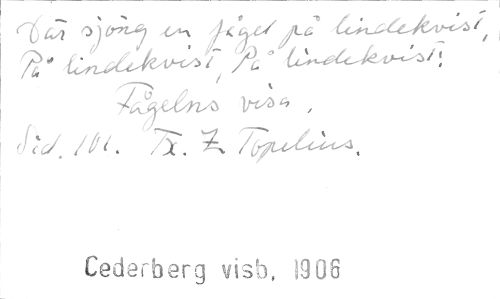 Där sjöng en fågel på lindekvist,
På lindekvist, På lindekvist!
Fågelns visa.
Sid. 101. Tx. Z Topelius.
Cederberg visb. 1906